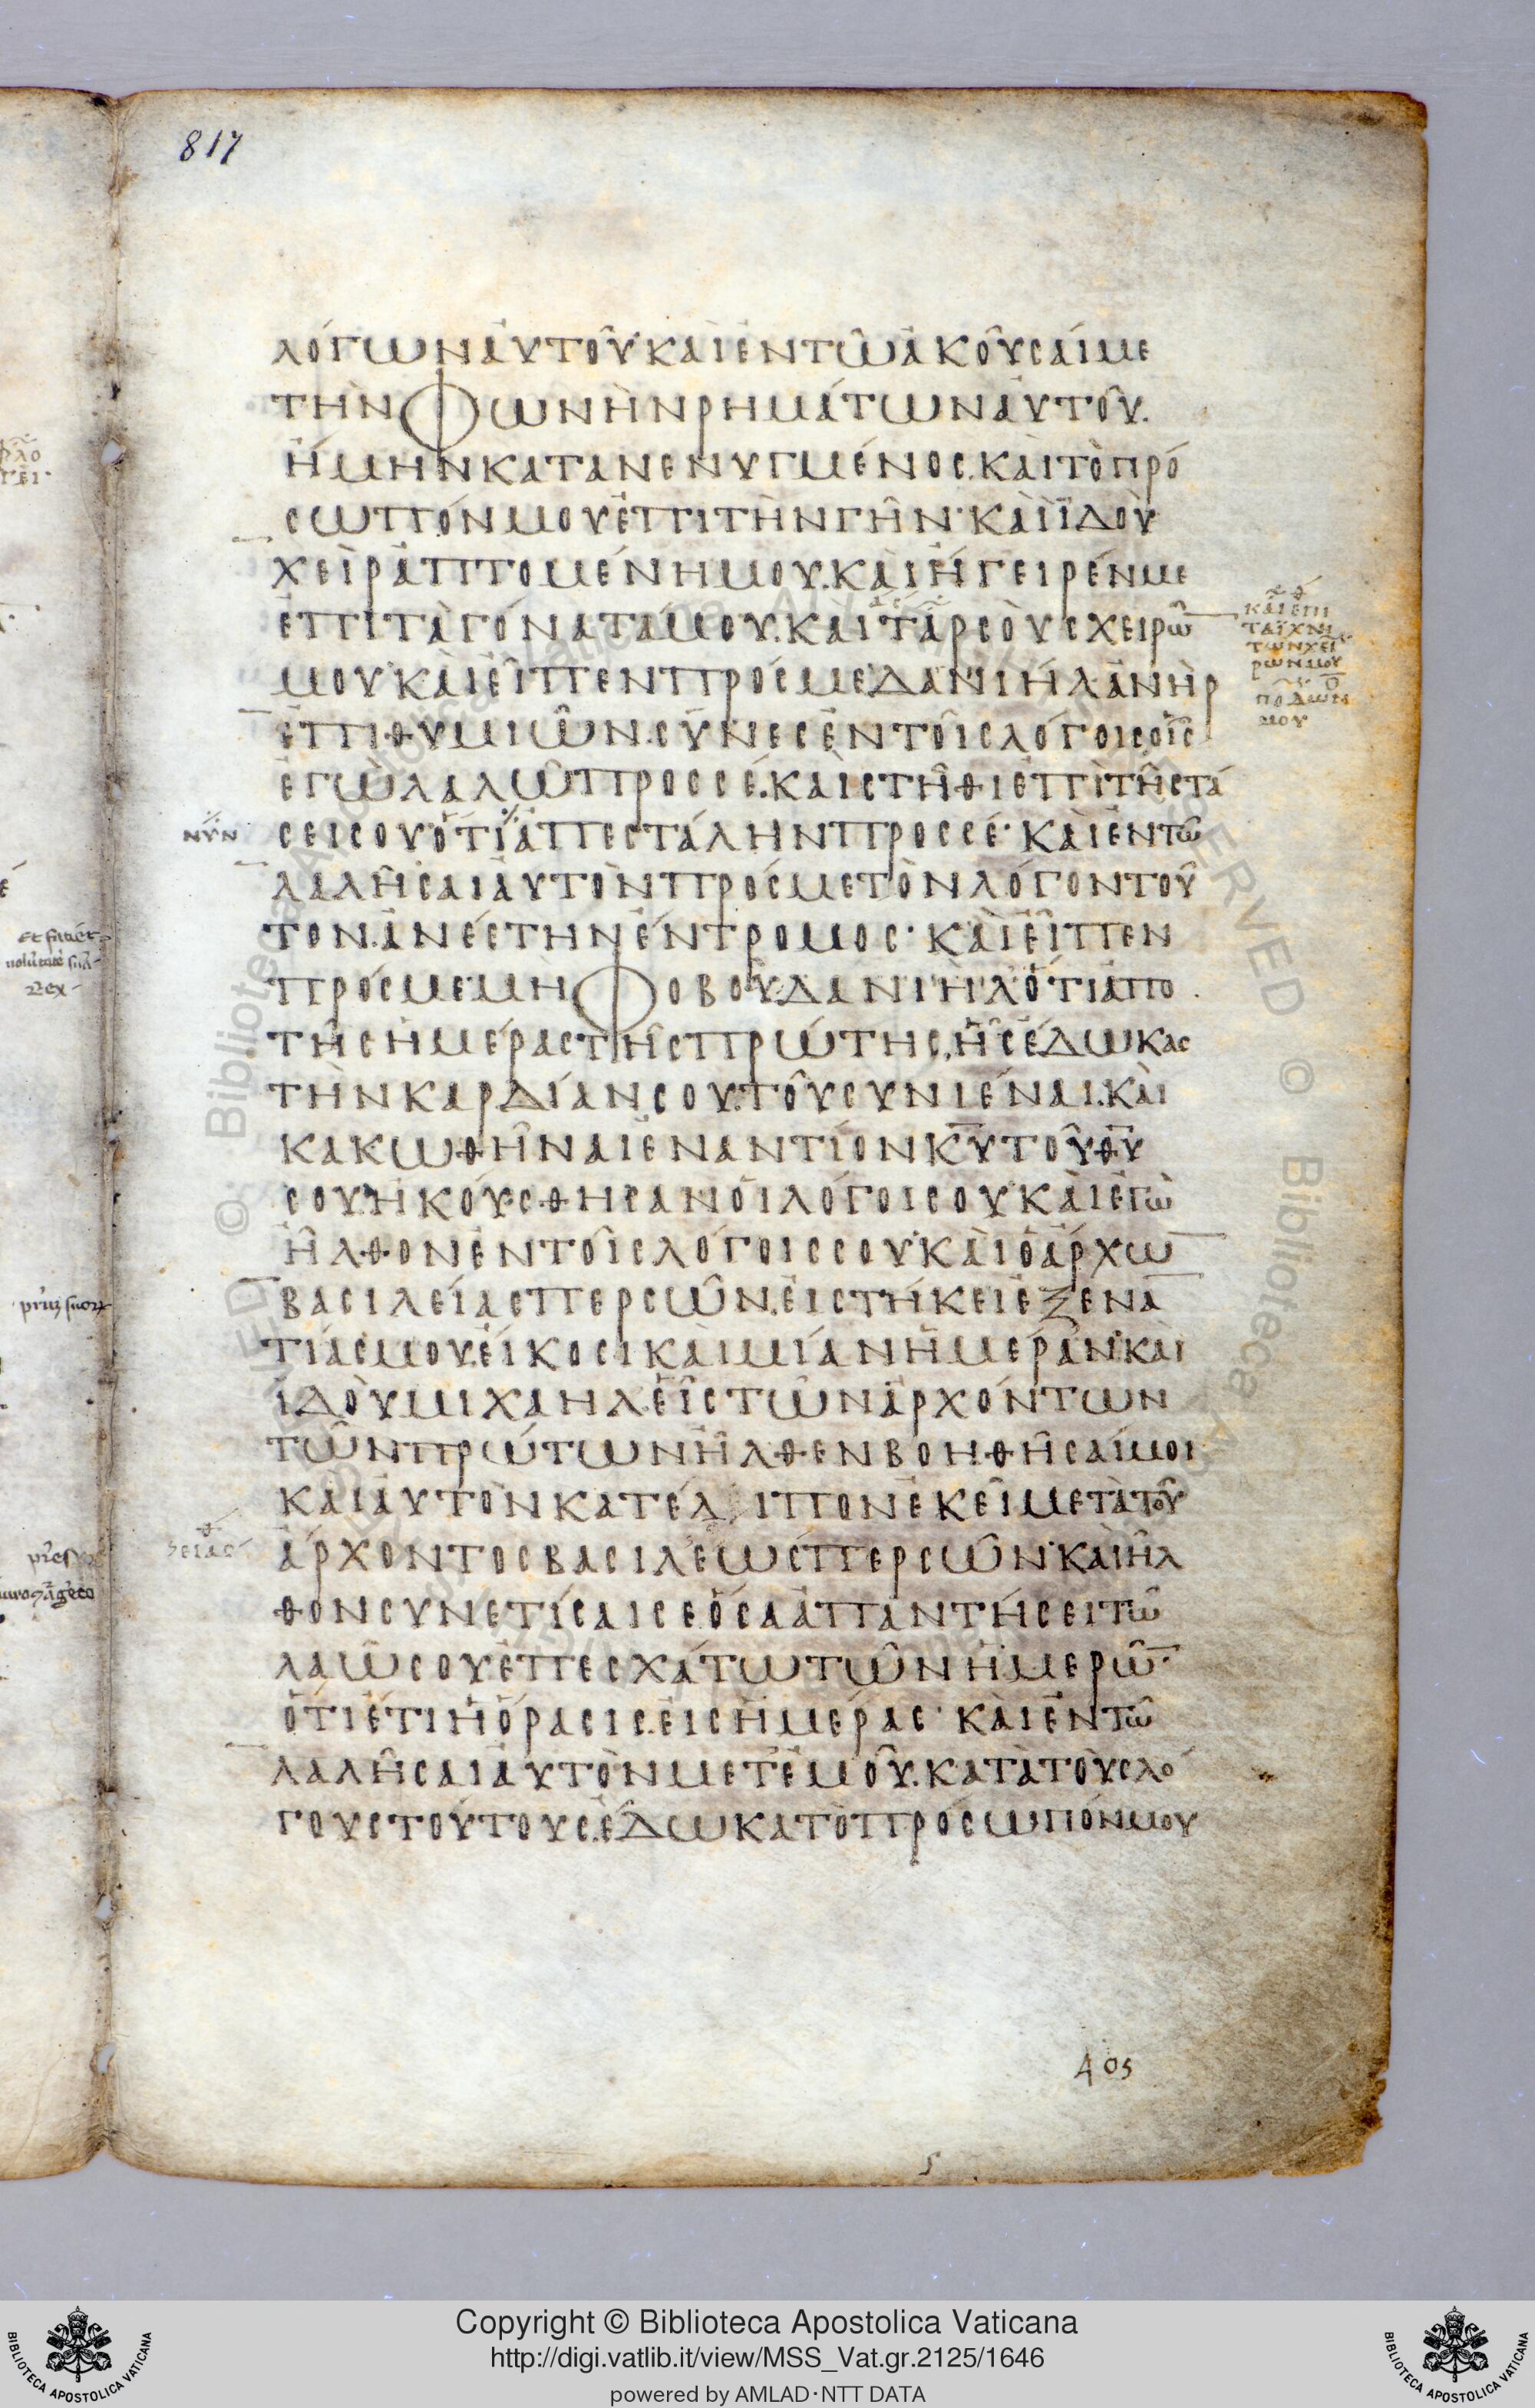 817
λόγων ἀυτοῦ· καὶ ἐν τῶ ἀκοῦσαί με
τὴν φωνὴν ρημάτων ἀυτοῦ.
ἤμην κατανενυγμένος. καὶ τὸ πρό
σωπόν μου ἐπι τὴν γῆν· καὶ ἰδοὺ
χεὶρ ἁπτομένη μου. καὶ ἤγειρέν με
ἐπι τὰ γόνατά μου. καὶ ταρσοὺς χειρῶ̅
μου· καὶ εἶπεν πρός με· δανιήλ ἀνὴρ
ἐπιθυμιῶν. σύνες ἐν τοῖς λόγοις οἷς
ἐγὼ λαλῶ προς σέ. καὶ στῆθι ἐπὶ τῆ στά
σει σου ὅτι ἀπεστάλην προς σέ· καὶ ἐν τῶ
λαλῆσαι ἀυτὸν πρός με τὸν λόγον τοῦ
τον. ἀνέστην ἔντρομος· καὶ εἶπεν
πρός με· μὴ φοβοῦ δανιὴλ ὅτι ἀπο
τῆς ἡμέρας τῆς πρώτης, ἧς ἔδωκας
τὴν καρδίαν σου. τοῦ συνιέναι. καὶ
κακωθῆναι ἐναντίον κ̅υ̅ τοῦ θ̅υ̅
σου· ἠκούσθησαν ὁι λόγοι σου· καὶ ἐγὼ
ἦλθον ἐν τοῖς λόγοις σου· καὶ ὁ ἄρχω̅
βασιλείας περσῶν. εἱστήκει ἐξ ενα̅
τίας μου. εἴκοσι καὶ μίαν ἡμέραν· καὶ
ἰδοὺ μιχαηλ εἷς τῶν ἀρχόντων
τῶν πρώτων ἦλθεν βοηθῆσαί μοι
καὶ ἀυτὸν κατέλιπον ἐκεῖ μετὰ τοῦ
ἄρχοντος βασιλέως περσῶν· καὶ ἦλ
θον συνετίσαι σε. ὅσα ἀπαντήσει τῶ
λαῶ σου ἐπ εσχάτω τῶν ἡμερῶ̅·
ὅτι ἔτι ἡ ὅρασις. εἰς ἡμέρας· καὶ ἐν τῶ
λαλῆσαι ἀυτὸν μετ ἐμοῦ. κατὰ τοὺς λό
γους τούτους. ἔδωκα τὸ πρόσωπόν μου
καὶ ἐπι
τὰ ἴχνη
τῶν χει
ρῶν μου
ποδῶν
μου
νῦν
σείας
405
Copyright © Biblioteca Apostolica Vaticana
http://digi.vatlib.it/view/MSS_Vat.gr.2125/1646
powered by AMLAD·NTT DATA
BIBLIOTECA APOSTOLICA VATICANA
BIBLIOTECA APOSTOLICA VATICANA